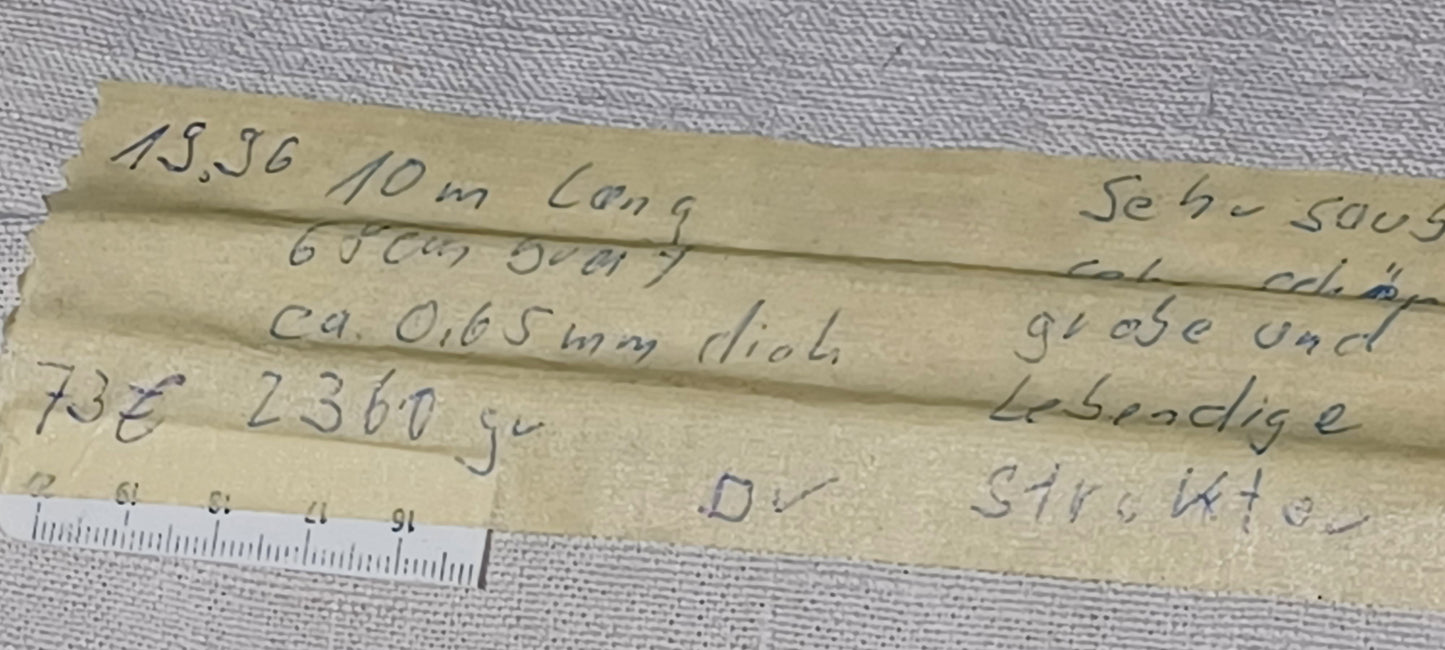 19.96 10 m Lang
68 cm breit
ca. 0,65 mm dick
73€ 2360 gr
Sehr saub
schön
grobe und
Lebendige
Struktur
20 19 18 17 16